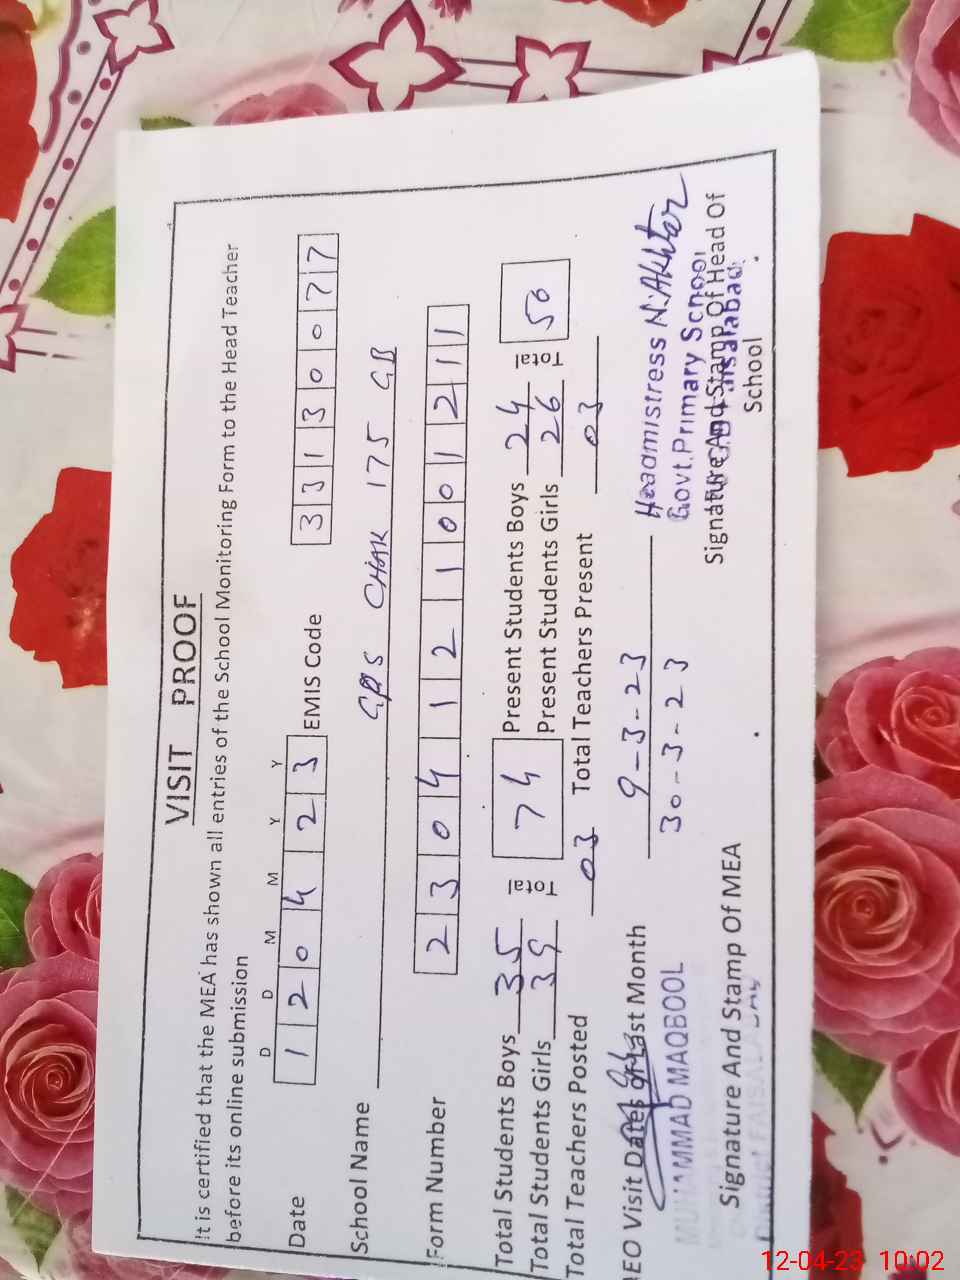 VISIT PROOF
It is certified that the MEA has shown all entries of the School Monitoring Form to the Head Teacher
before its online submission
D D M M Y Y
Date 1 2 0 4 2 3 EMIS Code 3 3 1 3 0 0 7 7
School Name GPS CHAK 175 GB
Form Number 2 3 0 4 1 2 1 0 0 1 2 1 1
Total Students Boys 35 Total 74 Present Students Boys 24 Total 50
Total Students Girls 39 Present Students Girls 26
Total Teachers Posted 03 Total Teachers Present 03
AEO Visit Dates of Last Month 9-3-23
30-3-23
MUHAMMAD MAQBOOL
District FAISALABAD
Signature And Stamp Of MEA
Headmistress N.Akhtar
Govt.Primary School
Faisalabad
Signature And Stamp Of Head Of
School
12-04-23 10:02